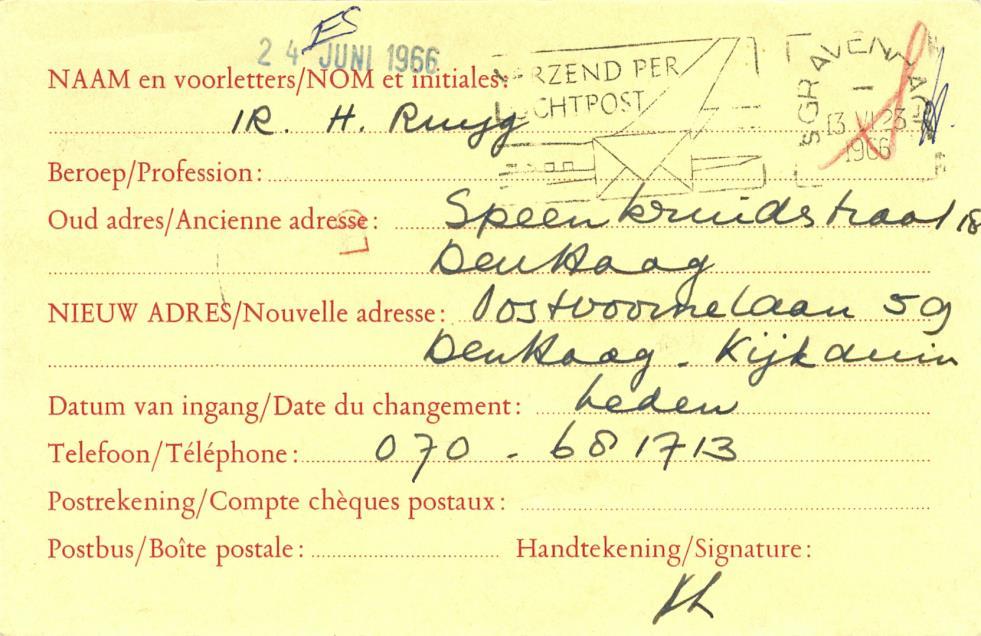 ES
24 JUNI 1966
NAAM en voorletters/NOM et initiales:
IR. H. Ruyg
VERZEND PER
LUCHTPOST
'SGRAVENHAGE
1
13.VI.23
1966
Beroep/Profession:
Oud adres/Ancienne adresse: Speenkruidstraat 18
Den Haag
NIEUW ADRES/Nouvelle adresse: Oostvoornelaan 59
Den Haag - Kijkduin
Datum van ingang/Date du changement: heden
Telefoon/Téléphone: 070 - 681713
Postrekening/Compte chèques postaux:
Postbus/Boîte postale: Handtekening/Signature: